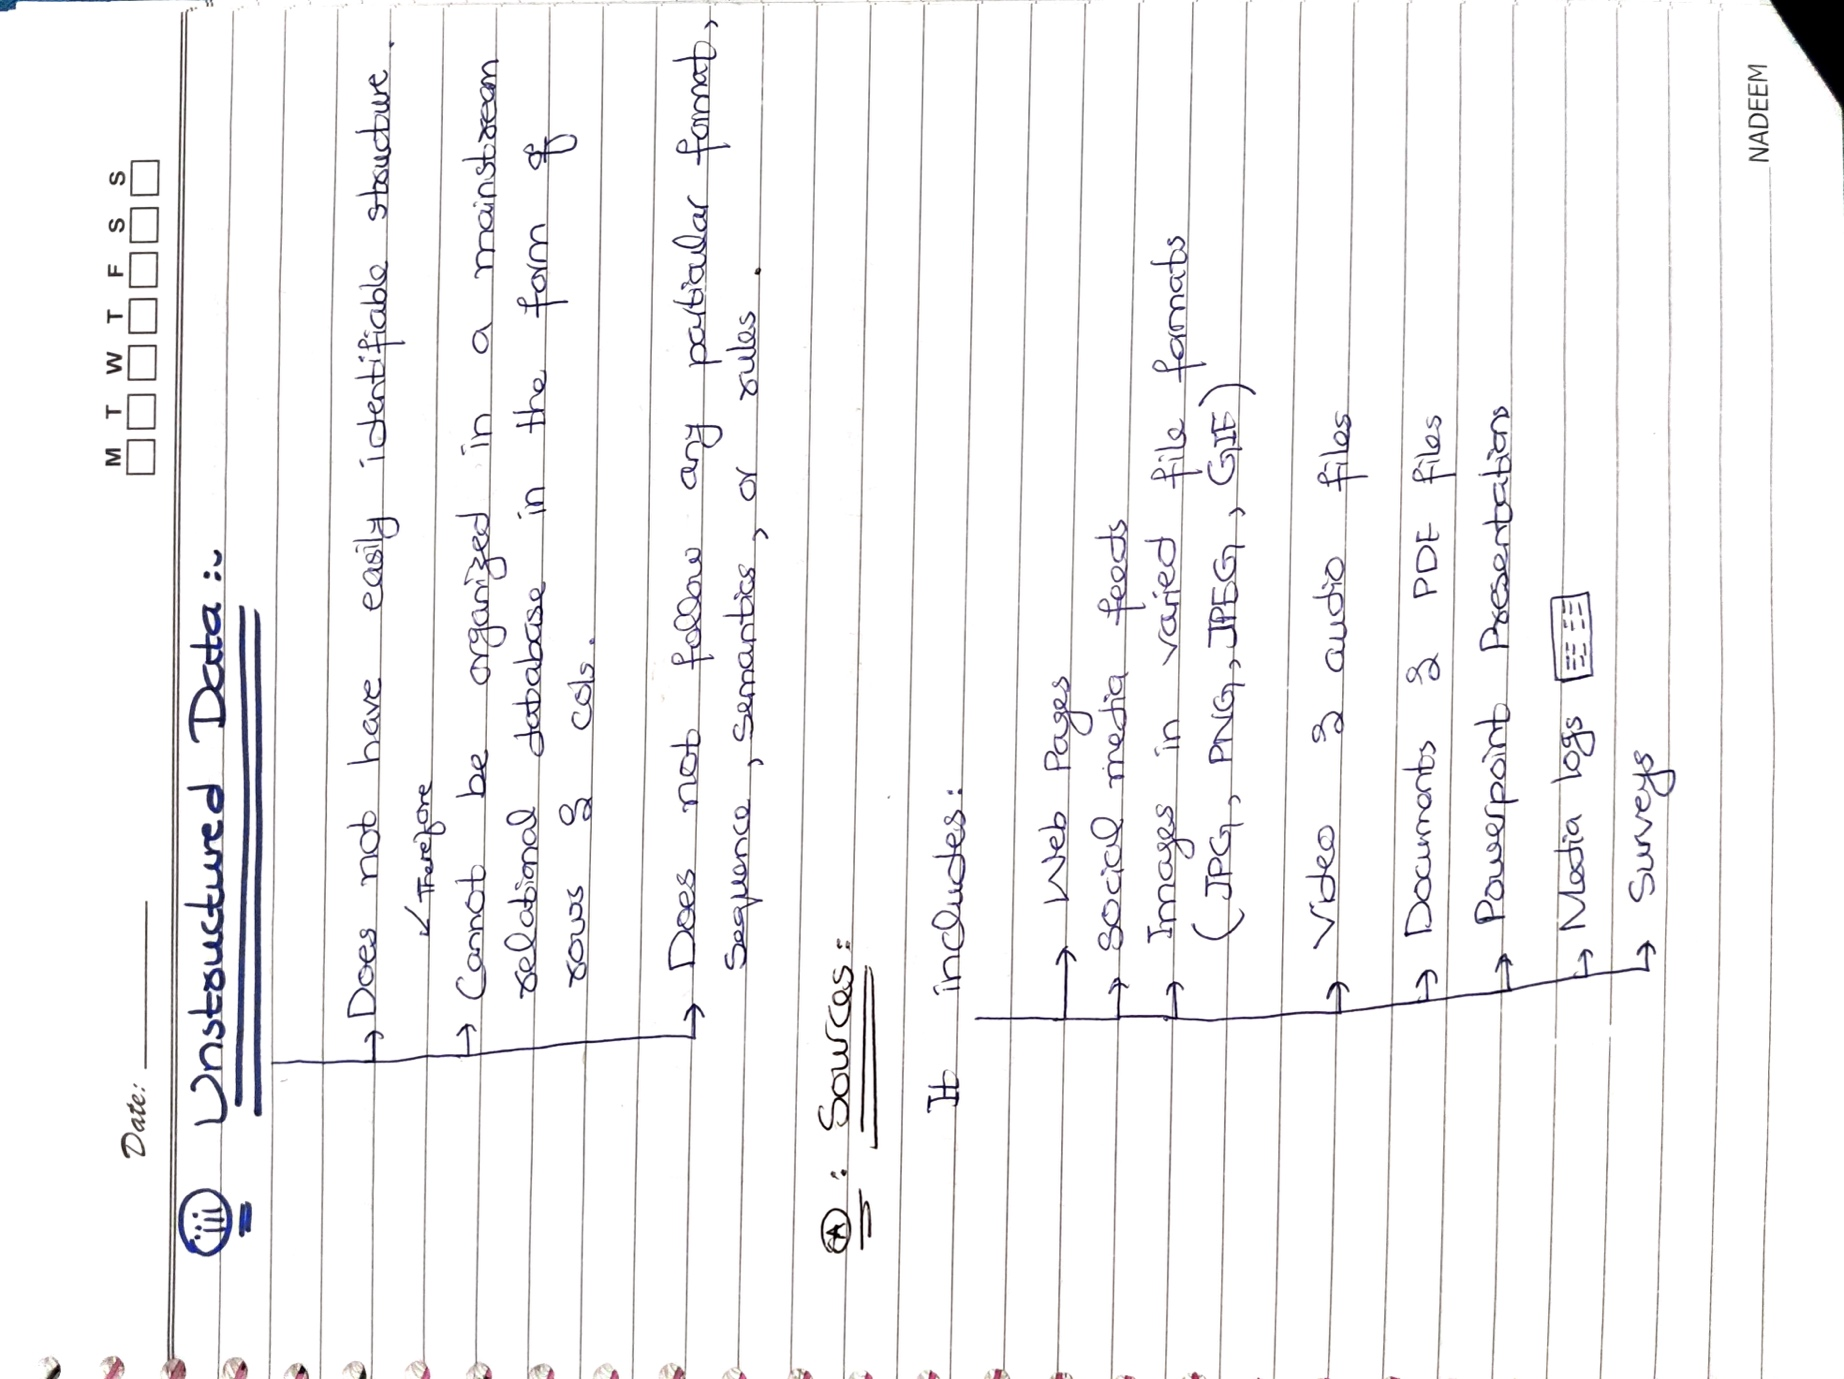 Date:
M T W T F S S
iii Unstructured Data:~
→ Does not have easily identifiable structure.
↙ Therefore
→ Cannot be organized in a mainstream
relational database in the form of
rows & cols.
→ Does not follow any particular format,
sequence, semantics, or rules.
A : Sources:
It includes:
→ Web Pages
→ Social media feeds
→ Images in varied file formats
(JPG, PNG, JPEG, GIF)
→ Video & audio files
→ Documents & PDF files
→ Powerpoint Presentations
→ Media logs
→ Surveys
NADEEM